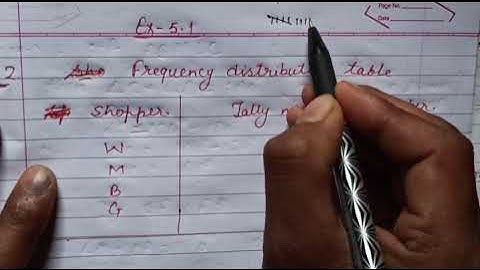 Page No.
Date
Ex-5.1
2 Frequency distribut table
Shopper. Tally
W
M
B
G